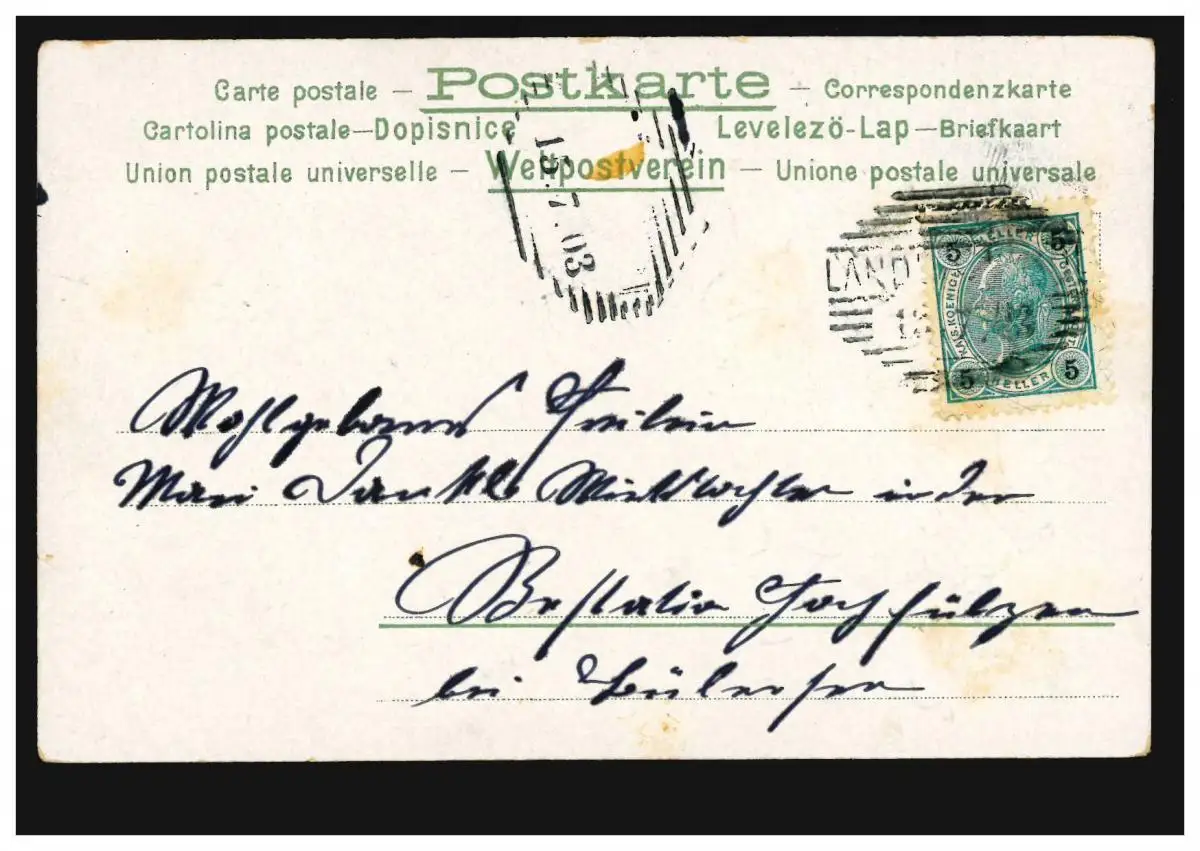 Carte postale – Postkarte – Correspondenzkarte
Cartolina postale – Dopisnice Levelezö-Lap – Briefkaart
Union postale universelle – Weltpostverein – Unione postale universale
15.7.03
LAND
5 HELLER 5
KAIS. KOENIGL.
5 HELLER 5
Wohlgeborne Freilein
Mari
in der
Hochfülzen
bei